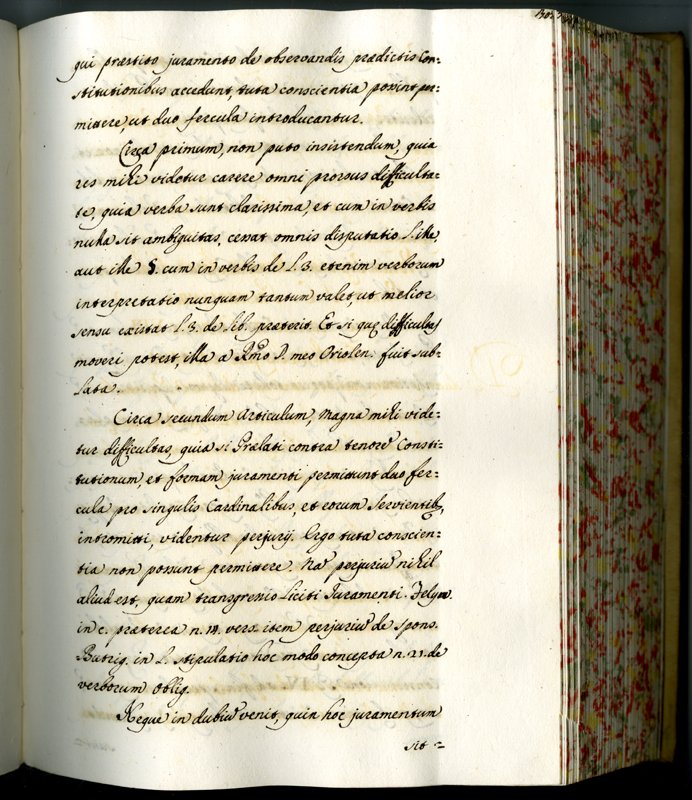 qui præstito juramento de observandis prædictis Con:
stitutionibus accedunt, tuta conscientia possint per:
mittere, ut duo fercula introducantur.
Circa primum, non puto insistendum, quia
res mihi videtur carere omni prorsus difficulta:
te, quia verba sunt clarissima, et cum in verbis
nulla sit ambiguitas, cessat omnis disputatio l. ille,
aut ille §. cum in verbis de l. 3. etenim verborum
interpretatio nunquam tantum valet ut melior
sensu existat l. 3. de lib. præterit. Et si quę difficultas
moveri potest, illa a Rmo D. meo Oriolen. fuit sub:
lata.
Circa secundum Articulum, magna mihi vide:
tur difficultas, quia si Prælati contra tenorē Consti:
tutionum et formam juramenti permittunt duo fer:
cula pro singulis Cardinalibus, et eorum servientib,
intromitti, videntur perjurij. Ergo tuta conscien:
tia non possunt permittere. Nā perjuriū nihil
aliud est, quam transgressio liciti Juramenti. Felyn.
in c. præterea n. 14. vers. item perjuriū de spons.
Butrig. in l. stipulatio hoc modo concepta n. 21. de
verborum oblig.
Neque in dubiū venit, quin hoc juramentum
sit